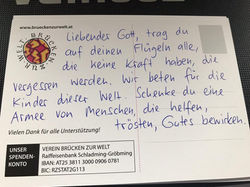 www.brueckenzurwelt.at
VEREIN BRÜCKEN ZUR WELT
Liebender Gott, trag du
auf deinen Flügeln alle,
die keine Kraft haben, die
vergessen werden. Wir beten für die
Kinder dieser Welt. Schenke du eine
Armee von Menschen, die helfen,
trösten, Gutes bewirken.
Vielen Dank für alle Unterstützung!
UNSER
SPENDEN-
KONTO
VEREIN BRÜCKEN ZUR WELT
Raiffeisenbank Schladming-Gröbming
IBAN: AT25 3811 3000 0906 0781
BIC: RZSTAT2G113